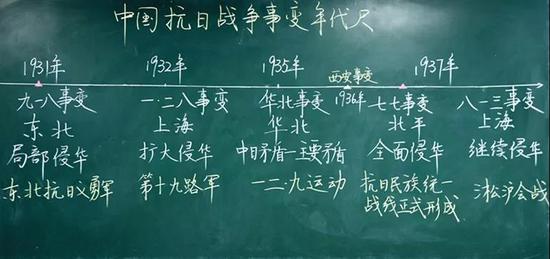 中国抗日战争事变年代尺
1931年 1932年 1935年 西安事变 1936年 1937年
九·一八事变 一·二八事变 华北事变 七七事变 八一三事变
东北 上海 华北 北平 上海
局部侵华 扩大侵华 中日矛盾—主要矛盾 全面侵华 继续侵华
东北抗日义勇军 第十九路军 一二·九运动 抗日民族统一 淞沪会战
战线正式形成